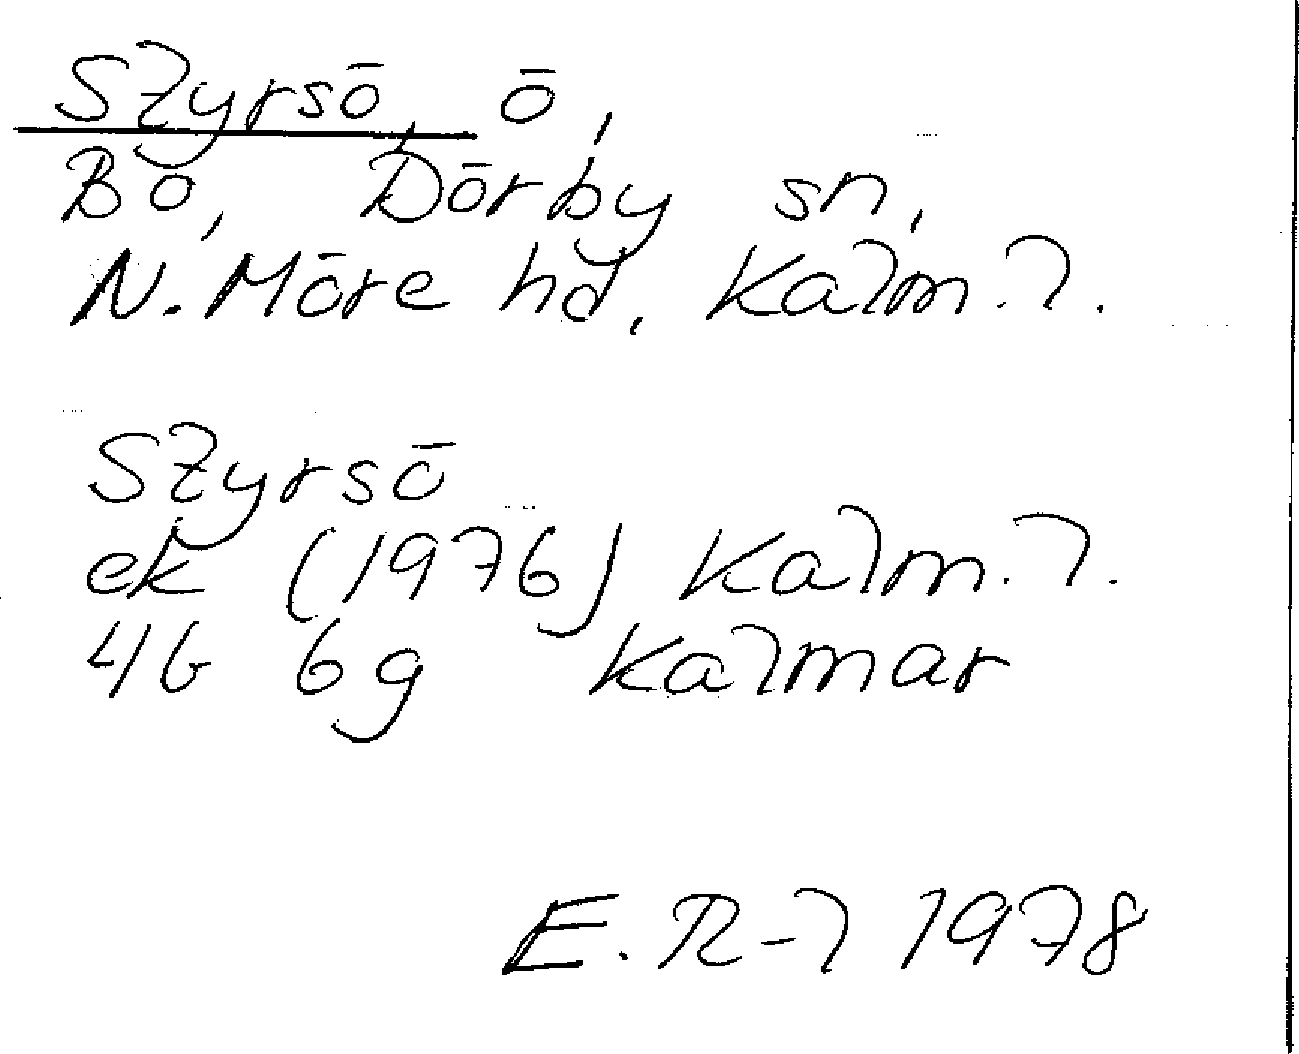 Styrsö, ö,
Bo, Dörby sn,
N. Möre hd, Kalm. l.
Styrsö
ek (1976) Kalm. l.
4G 6g Kalmar
E. R-l 1978